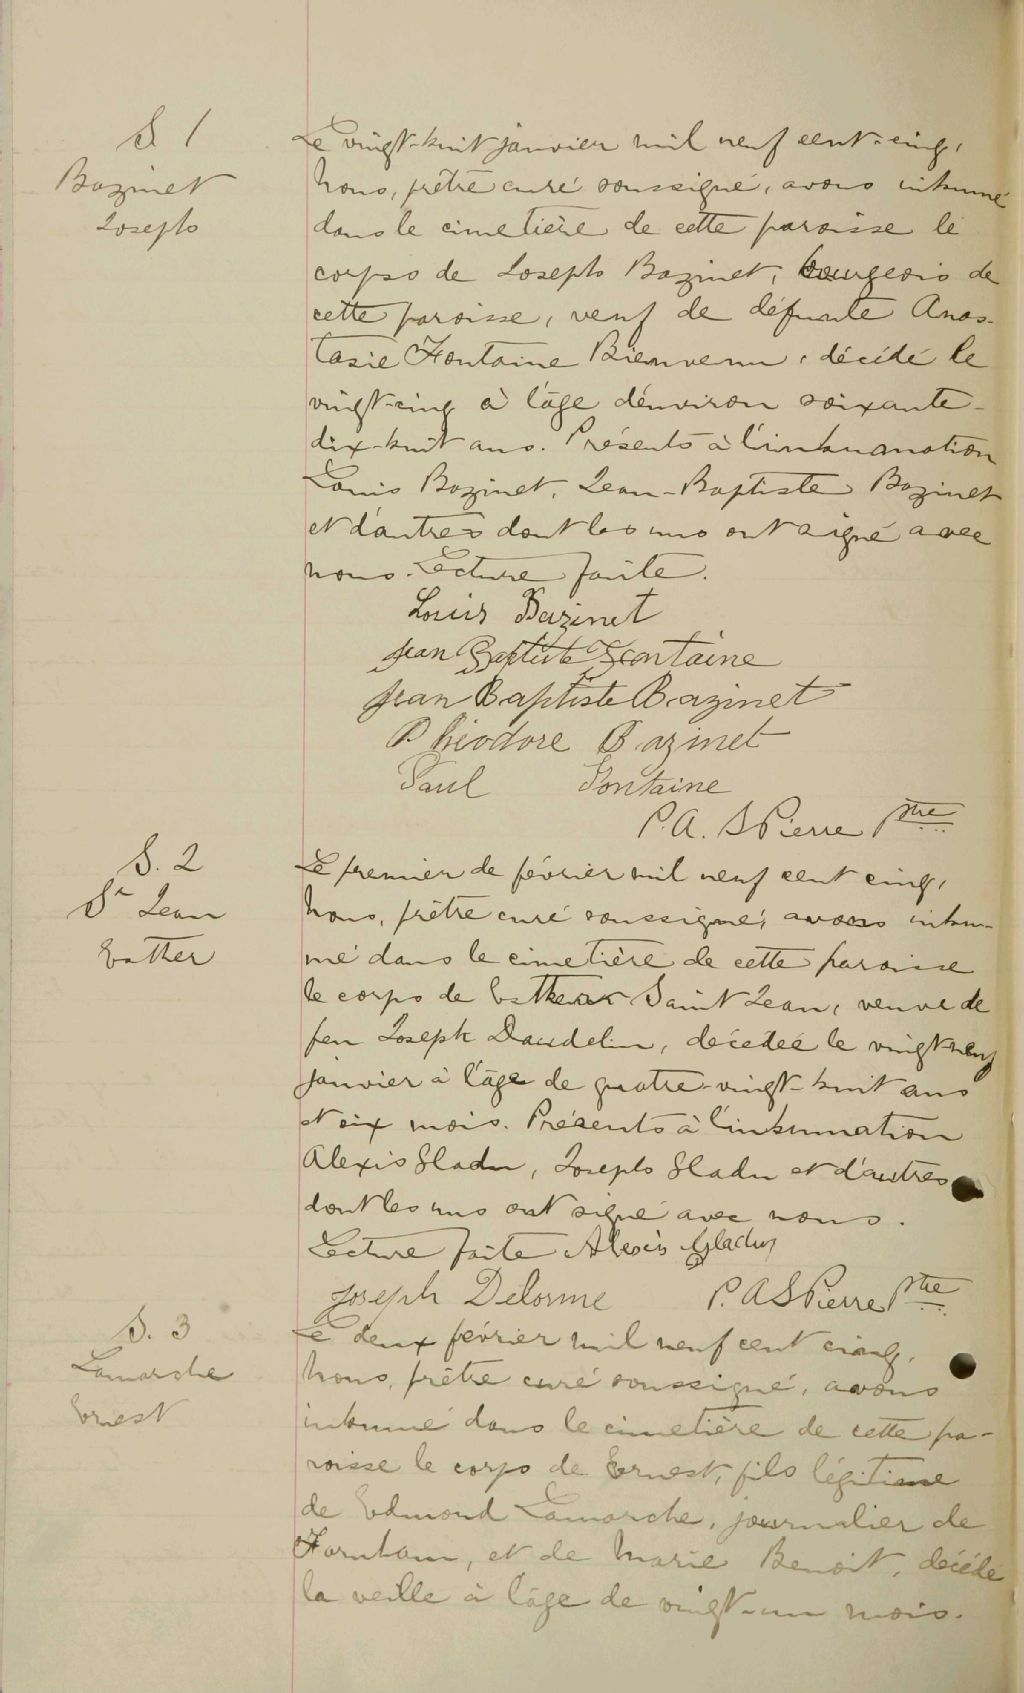 S 1
Bazinet
Joseph
Le vingt-huit janvier mil neuf cent-cinq,
Nous, prêtre curé soussigné, avons inhumé
dans le cimetière de cette paroisse le
corps de Joseph Bazinet, bourgeois de
cette paroisse, veuf de défunte Anas-
tasie Fontaine Bienvenu, décédé le
vingt-cinq à l'âge d'environ soixante-
dix-huit ans. Présents à l'inhumation
Louis Bazinet, Jean-Baptiste Bazinet
et d'autres dont les uns ont signé avec
nous. Lecture faite.
Louis Bazinet
Jean Baptiste Fontaine
Jean Baptiste Bazinet
Théodore Bazinet
Paul Fontaine
P. A. St Pierre Ptre
S. 2
St Jean
Esther
Le premier de février mil neuf cent cinq,
Nous, prêtre curé soussigné, avons inhu-
mé dans le cimetière de cette paroisse
le corps de Esther Saint Jean, veuve de
feu Joseph Daudelin, décédée le vingt-neuf
janvier à l'âge de quatre-vingt-huit ans
et six mois. Présents à l'inhumation
Alexis Gladu, Joseph Gladu et d'autres
dont les uns ont signé avec nous.
Lecture faite Alexis Gladu
Joseph Delorme P. A St Pierre Ptre
S. 3
Lamarche
Ernest
Le deux février mil neuf cent cinq,
Nous, prêtre curé soussigné, avons
inhumé dans le cimetière de cette pa-
roisse le corps de Ernest, fils légitime
de Edmond Lamarche, journalier de
Farnham, et de Marie Benoit, décédé
la veille à l'âge de vingt-un mois.